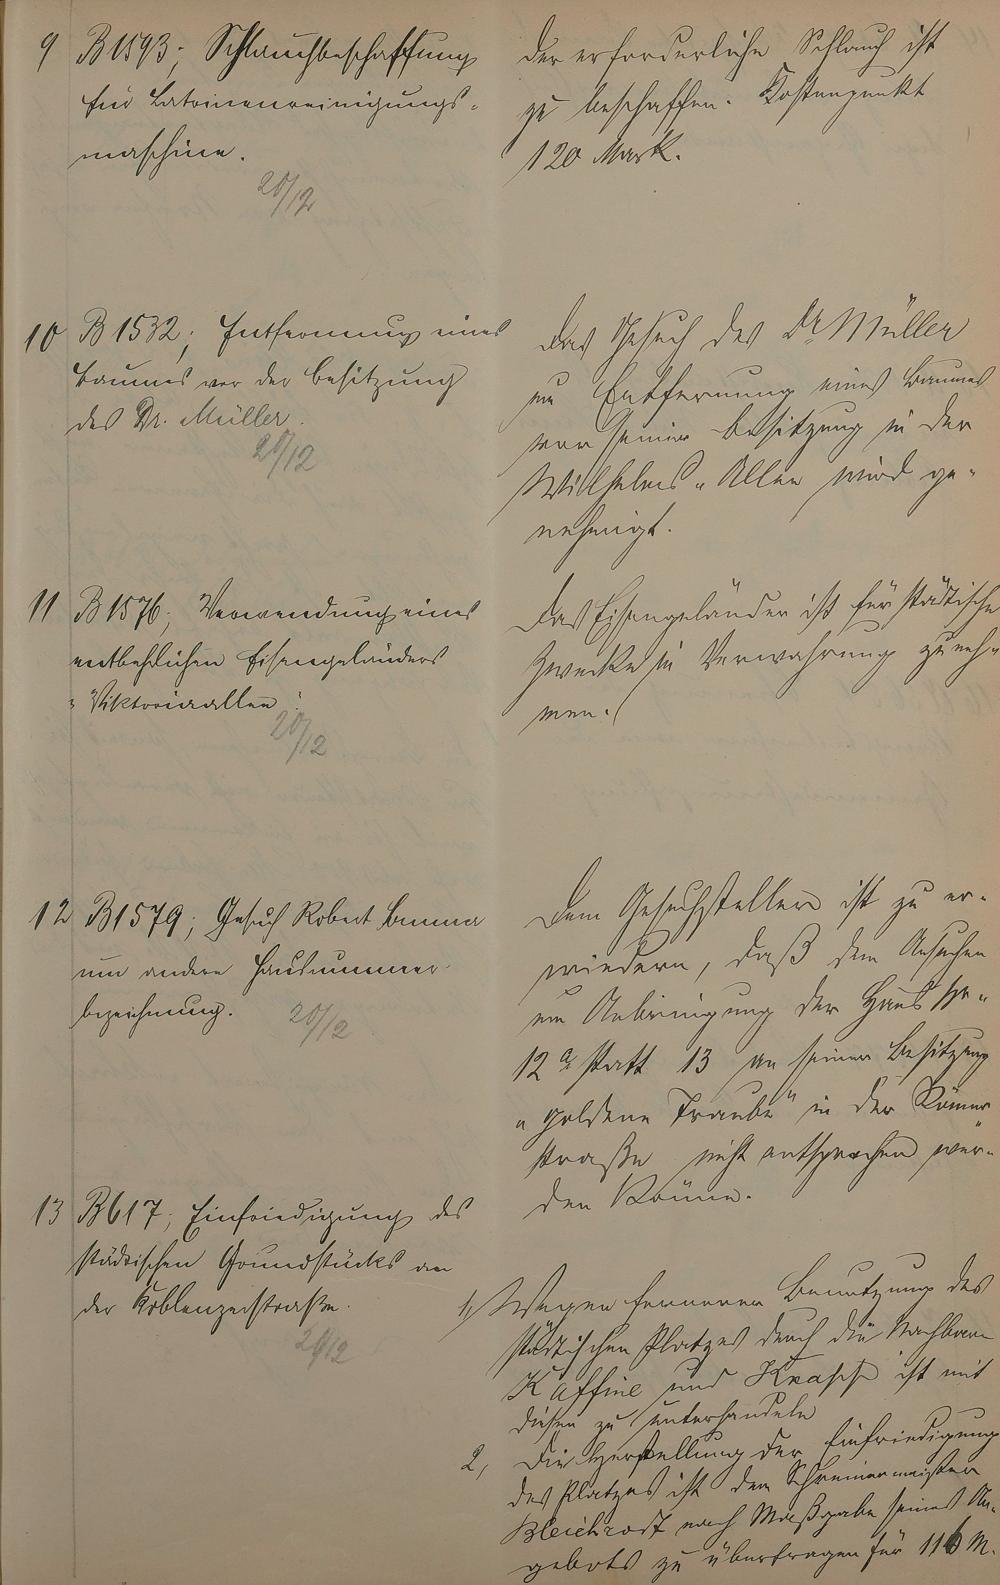 9 B 1593; Schlauchbeschaffung
für Latrinenreinigungs-
maschine.
20/12
Der erforderliche Schlauch ist
zu beschaffen. Kostenpunkt
120 Mark.
10 B 1532; Entfernung eines
Baumes vor der Besitzung
des Dr. Müller.
20/12
Das Gesuch des Dr Müller
um Entfernung eines Baumes
vor seiner Besitzung in der
Wilhelms-Allee wird ge-
nehmigt.
11 B 1576; Verwendung eines
entbehrlichen Eisengeländers
"Viktoriaallee".
20/12
Das Eisengeländer ist für städtische
Zwecke in Verwahrung zu neh-
men.
12 B 1579; Gesuch Robert
um andere Hausnummer-
bezeichnung.
20/12
Dem Gesuchsteller ist zu er-
wiedern, daß dem Ansuchen
um Anbringung der Haus No
12 a statt 13 an seiner Besitzung
"goldene Traube" in der Römer
straße nicht entsprochen wer-
den könne.
13 B 617; Einfriedigung des
städtischen Grundstücks an
der Koblenzerstraße.
20/12
1, Wegen fernerer Benutzung des
städtischen Platzes durch die Nachbarn
Kaffine und ist mit
diesen zu unterhandeln
2, Die Herstellung der Einfriedigung
des Platzes ist dem Schreinermeister
Bleichrodt nach Maßgabe seines An-
gebots zu übertragen für 116 M.